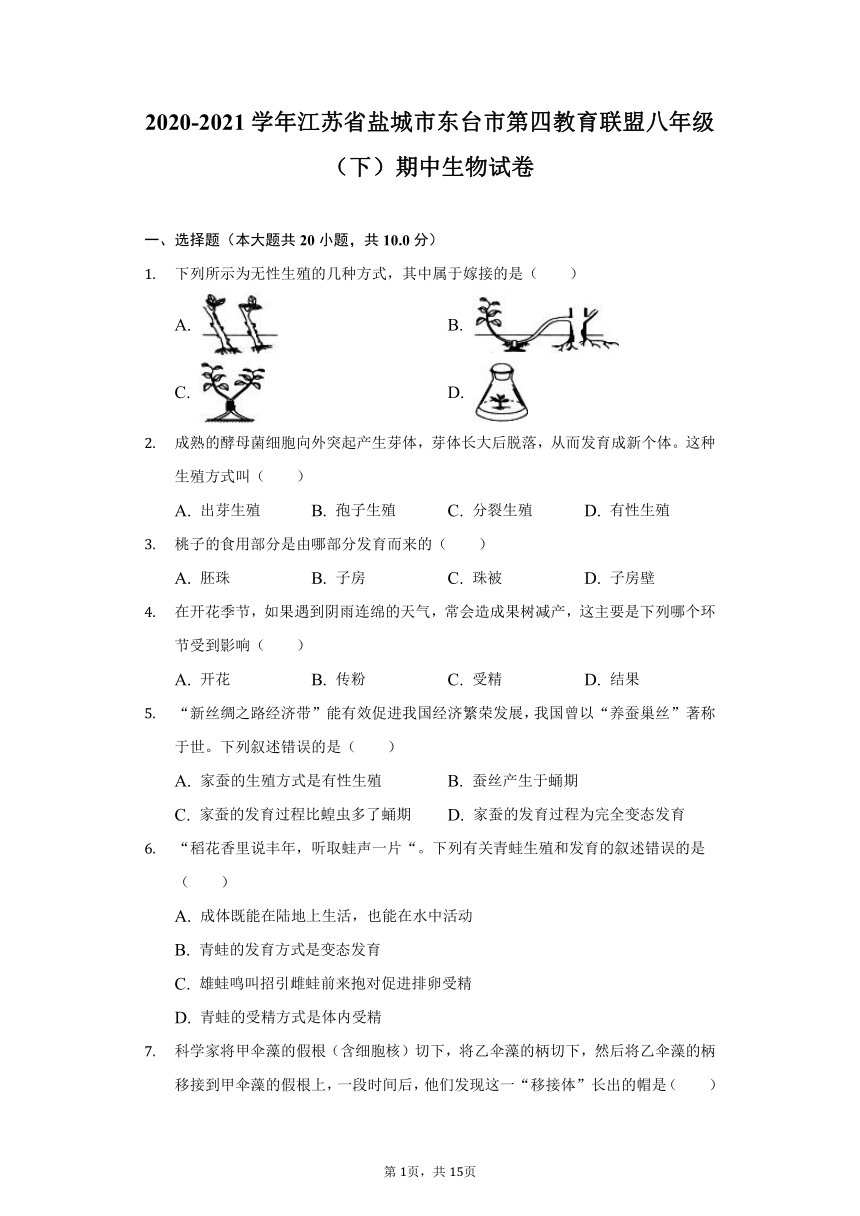 2020-2021 学年江苏省盐城市东台市第四教育联盟八年级
（下）期中生物试卷
一、选择题（本大题共 20 小题，共 10.0 分）
1. 下列所示为无性生殖的几种方式，其中属于嫁接的是（　　）
A. B.
C. D.
2. 成熟的酵母菌细胞向外突起产生芽体，芽体长大后脱落，从而发育成新个体。这种
生殖方式叫（　　）
A. 出芽生殖 B. 孢子生殖 C. 分裂生殖 D. 有性生殖
3. 桃子的食用部分是由哪部分发育而来的（　　）
A. 胚珠 B. 子房 C. 珠被 D. 子房壁
4. 在开花季节，如果遇到阴雨连绵的天气，常会造成果树减产，这主要是下列哪个环
节受到影响（　　）
A. 开花 B. 传粉 C. 受精 D. 结果
5. “新丝绸之路经济带”能有效促进我国经济繁荣发展，我国曾以“养蚕巢丝”著称
于世。下列叙述错误的是（　　）
A. 家蚕的生殖方式是有性生殖 B. 蚕丝产生于蛹期
C. 家蚕的发育过程比蝗虫多了蛹期 D. 家蚕的发育过程为完全变态发育
6. “稻花香里说丰年，听取蛙声一片“。下列有关青蛙生殖和发育的叙述错误的是
（　　）
A. 成体既能在陆地上生活，也能在水中活动
B. 青蛙的发育方式是变态发育
C. 雄蛙鸣叫招引雌蛙前来抱对促进排卵受精
D. 青蛙的受精方式是体内受精
7. 科学家将甲伞藻的假根（含细胞核）切下，将乙伞藻的柄切下，然后将乙伞藻的柄
移接到甲伞藻的假根上，一段时间后，他们发现这一“移接体”长出的帽是（　　）
第 1页，共 15页